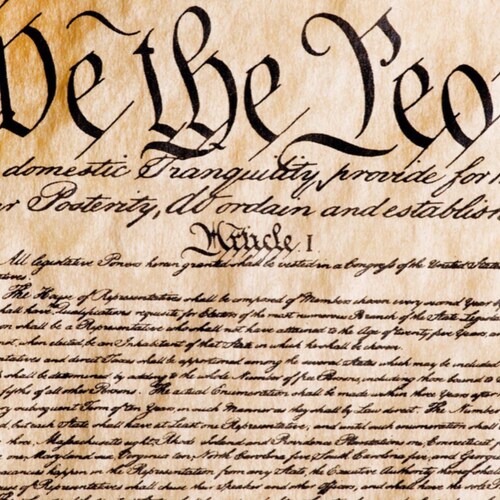 We the Peo
domestic Tranquility, provide for
r Posterity, do ordain and establish
Article I
All legislative Powers herein granted shall be vested in a Congress of the United States
atives
The House of Representatives shall be composed of Members chosen every second Year
shall have Qualifications requisite for Electors of the most numerous Branch of the State Legisla
son shall be a Representative who shall not have attained to the Age of twenty five Years, and
not, when elected, be an Inhabitant of that State in which he shall be chosen.
entatives and direct Taxes shall be apportioned among the several States which may be included
shall be determined by adding to the whole Number of free Persons, including those bound to
fifths of all other Persons. The actual Enumeration shall be made within three Years after
ry subsequent Term of ten Years, in such Manner as they shall by Law direct. The Number
d, but each State shall have at Least one Representative; and until such enumeration shall
three, Massachusetts eight, Rhode Island and Providence Plantations one, Connecticut
one, Maryland six, Virginia ten, North Carolina five, South Carolina five, and Georgia
vacancies happen in the Representation from any State, the Executive Authority thereof shall
use of Representatives shall chuse their Speaker and other Officers; and shall have the sole